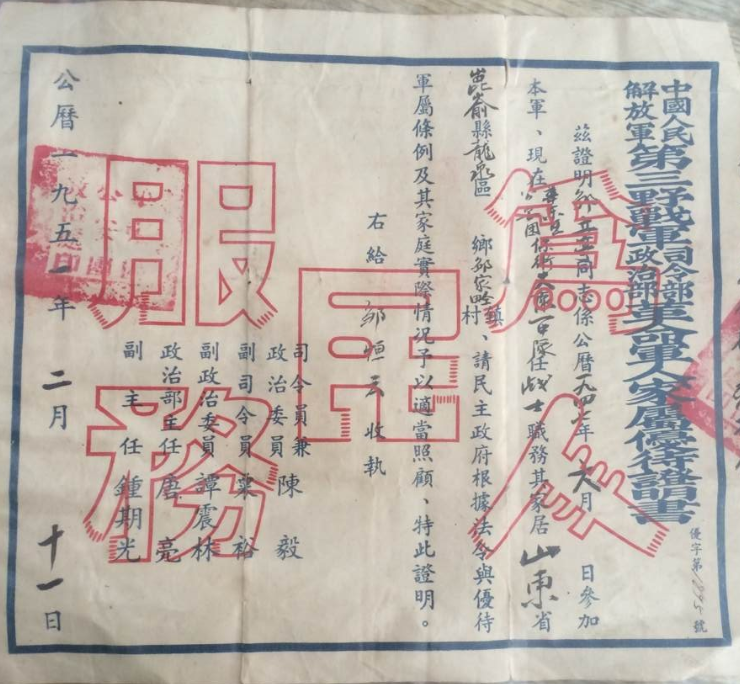 中國人民
解放軍
第三野戰軍
司令部
政治部
革命軍人家屬優待證明書
優字第 號
茲證明鄒 同志係公曆一九四七年六月 日參加
本軍、現在 團 任战士職務其家居山東省
崑嵛縣龍泉區 鄉鄒家疃鎮村、請民主政府根據法令與優待
軍屬條例及其家庭實際情況予以適當照顧、特此證明。
右給鄒恒云收執
司令員兼
政治委員 陳毅
副司令員 粟裕
副政治委員 譚震林
政治部主任 唐亮
副主任 鍾期光
公曆一九五一年二月十一日
為人民服務